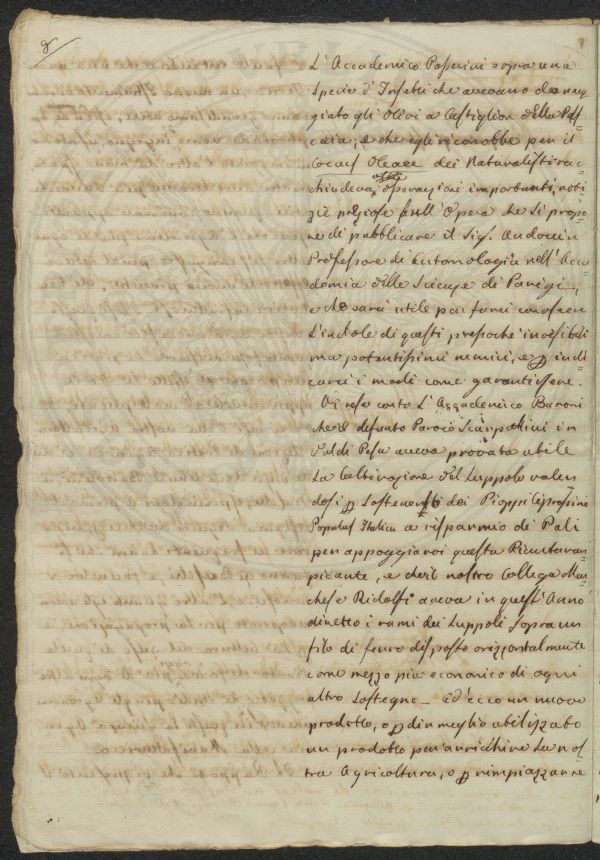 8/
L'Accademico Passerini sopra una
Specie d'Insetti che avevano danneg=
giato gli Olivi a Castiglion della Pes=
caia, e che egli riconobbe per il
Coccus Oleae dei Naturalisti rac=
chiudeva, oltre osservazioni importanti, noti=
zie preziose sull'Opera che si propo=
ne di pubblicare il Sig. Audouin
Professore di Entomologia nell'Acca=
demia delle Scienze di Parigi,
e che sarà utile per farci conoscere
L'indole di questi pressochè invisibili
ma potentissimi nemici, e p indi=
carci i modi come garantirsene.
Ci rese conto L'Accademico Baroni
che il defunto Paroco Scarpellini in
Val di Pesa aveva provata utile
La Coltivazione del Luppolo valen
dosi p Sostenerlo dei Pioppi Cipressini
Populus Italica a risparmio di Pali
per appoggiarvi questa Pianta ram=
picante, e che il nostro Collega Mar=
chese Ridolfi aveva in quest'Anno
diretto i rami dei Luppoli sopra un
filo di ferro disposto orizzontalmente
come mezzo più economico di ogni
altro Sostegno _ Ed ecco un nuovo
prodotto, o p dir meglio utilizzato
un prodotto per arricchire La nos=
tra Agricoltura, o p rimpiazzare